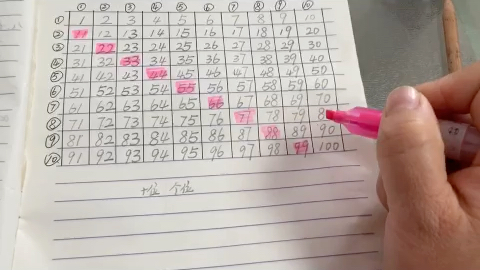 ① ② ③ ④ ⑤ ⑥ ⑦ ⑧ ⑨ ⑩
① 1 2 3 4 5 6 7 8 9 10
② 11 12 13 14 15 16 17 18 19 20
③ 21 22 23 24 25 26 27 28 29 30
④ 31 32 33 34 35 36 37 38 39 40
⑤ 41 42 43 44 45 46 47 48 49 50
⑥ 51 52 53 54 55 56 57 58 59 60
⑦ 61 62 63 64 65 66 67 68 69 70
⑧ 71 72 73 74 75 76 77 78 79 8
⑨ 81 82 83 84 85 86 87 88 89 90
⑩ 91 92 93 94 95 96 97 98 99 100
十位 个位